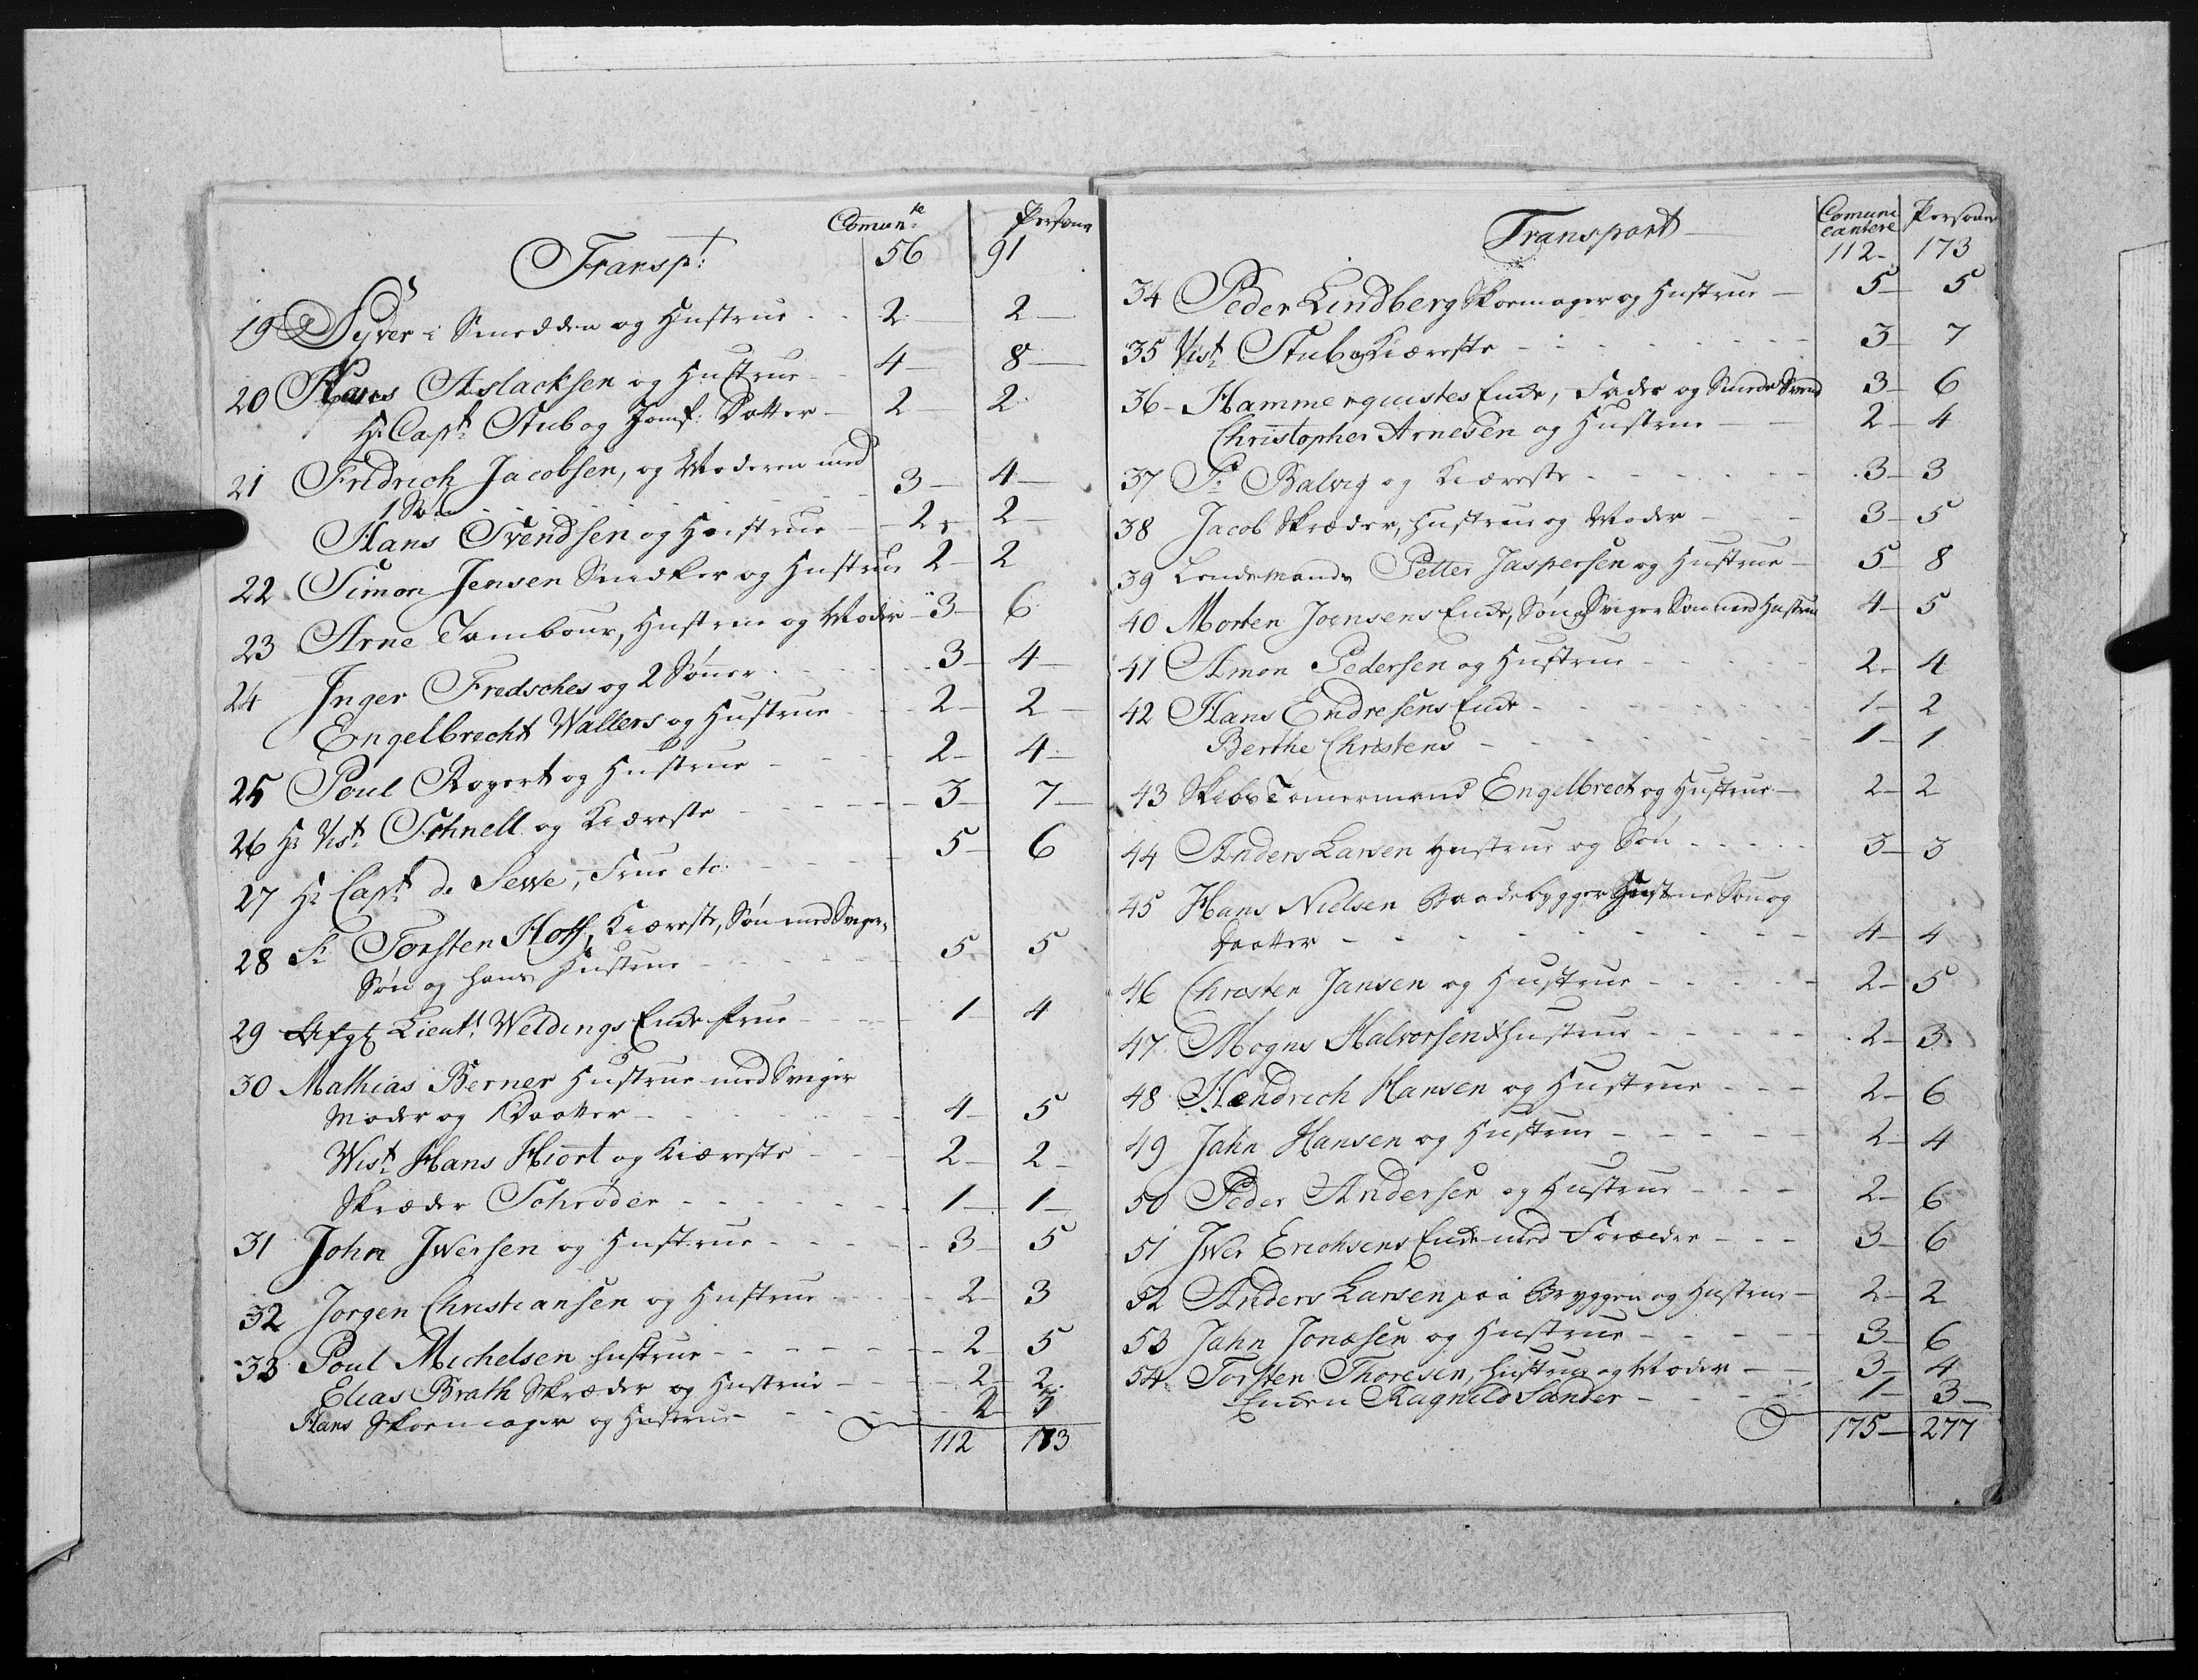 Comun.te Persone
Transp.t: 56 91
19 Syver i Smedden og Hustrue - - 2 - 2 -
20 Hans Aslacksen og Hustrue - 4 - 8 -
Hr. Capt. Stub og Jomf. Datter - 2 2
21 Fridrich Jacobsen, og Moderen med
1 Søn - - - 3 - 4 -
Hans Svendsen og Hustrue - 2 - 2 -
22 Simon Jensen Snedker og Hustrue 2 - 2
23 Arne Tambour, Hustrue og Moder - 3 - 6
24 Inger Fredsches og 2 Sønner - - - 3 - 4 -
Engelbrecht Wallers og Hustrue - - 2 - 2 -
25 Poul Rogert og Hustrue - - - 2 - 4 -
26 Hr. Vist. Schnell og Kiæreste - - - 3 - 7 -
27 Hr. Capt. de Sewe, Frue etc: - - - 5 - 6
28 Sr. Torsten Hoff, Kiæreste, Søn med Sviger-
Søn og hans Hustrue - - - 5 5
29 Afgl. Lieut. Weldings Enke frue - - - 1 - 4
30 Mathias Berner Hustrue med Sviger
Moder og 1 Daatter - - - 4 - 5
Vist. Hans Hiort og Kiæreste - - - 2 - 2 -
Skræder Schrøder - - - 1 - 1 -
31 John Iwersen og Hustrue - - - 3 - 5
32 Jorgen Christiansen og Hustrue - - - 2 - 3
33 Poul Michelsen Hustrue - - - 2 - 5
Elias Brath Skræder og Hustrue - - - 2 - 2.
Hans Skoemager og Hustrue - - - 2 3
112 173
Comuni Personer
cantere
Transport - 112 - 173
34 Peder Lindberg Skoemager og Hustrue - 5 - 5
35 Vist. Stub og Kiæreste - - - 3 - 7
36 - Hammerquistes Enke, Fader og Svend 3 - 6
Christopher Arnesen og Hustrue - - 2 - 4
37 Sr. Balvig og Kiæreste - - - 3 - 3
38 Jacob Skræder, Hustrue og Moder - - 3 - 5
39 Lendsmand Petter Jaspersen og Hustrue - 5 - 8
40 Morten Joensens Enke, Søn og Sviger Søn med Hustrue 4 - 5
41 Amon Pedersen og Hustrue - - - 2 - 4
42 Hans Endresens Enke - - - 1 - 2
Berthe Christens - - - 1 - 1
43 Skibs Tømermand Engelbrect og Hustrue - 2 - 2
44 Anders Larsen Hustrue og Søn - - - 3 - 3
45 Hans Nielsen Baadebygger Hustrue Søn og
Daatter - - - 4 - 4
46 Christen Jansen og Hustrue - - - 2 - 5
47 Mogns Halvorsen & Hustrue - - - 2 - 3
48 Hendrich Hansen og Hustrue - - - 2 - 6
49 Jahn Hansen og Hustrue - - - 2 - 4
50 Peder Andersen og Hustrue - - - 2 - 6
51 Iwer Erichsens Enke med Forældre - - - 3 - 6
52 Anders Larsen paa Bryggen og Hustrue - 2 - 2
53 Jahn Jonæsen og Hustrue - - - 3 - 6
54 Torsten Thoresen, Hustrue og Moder - - 3 - 4
Enken Ragnild Sander - - - 1 - 3 -
175 - 277